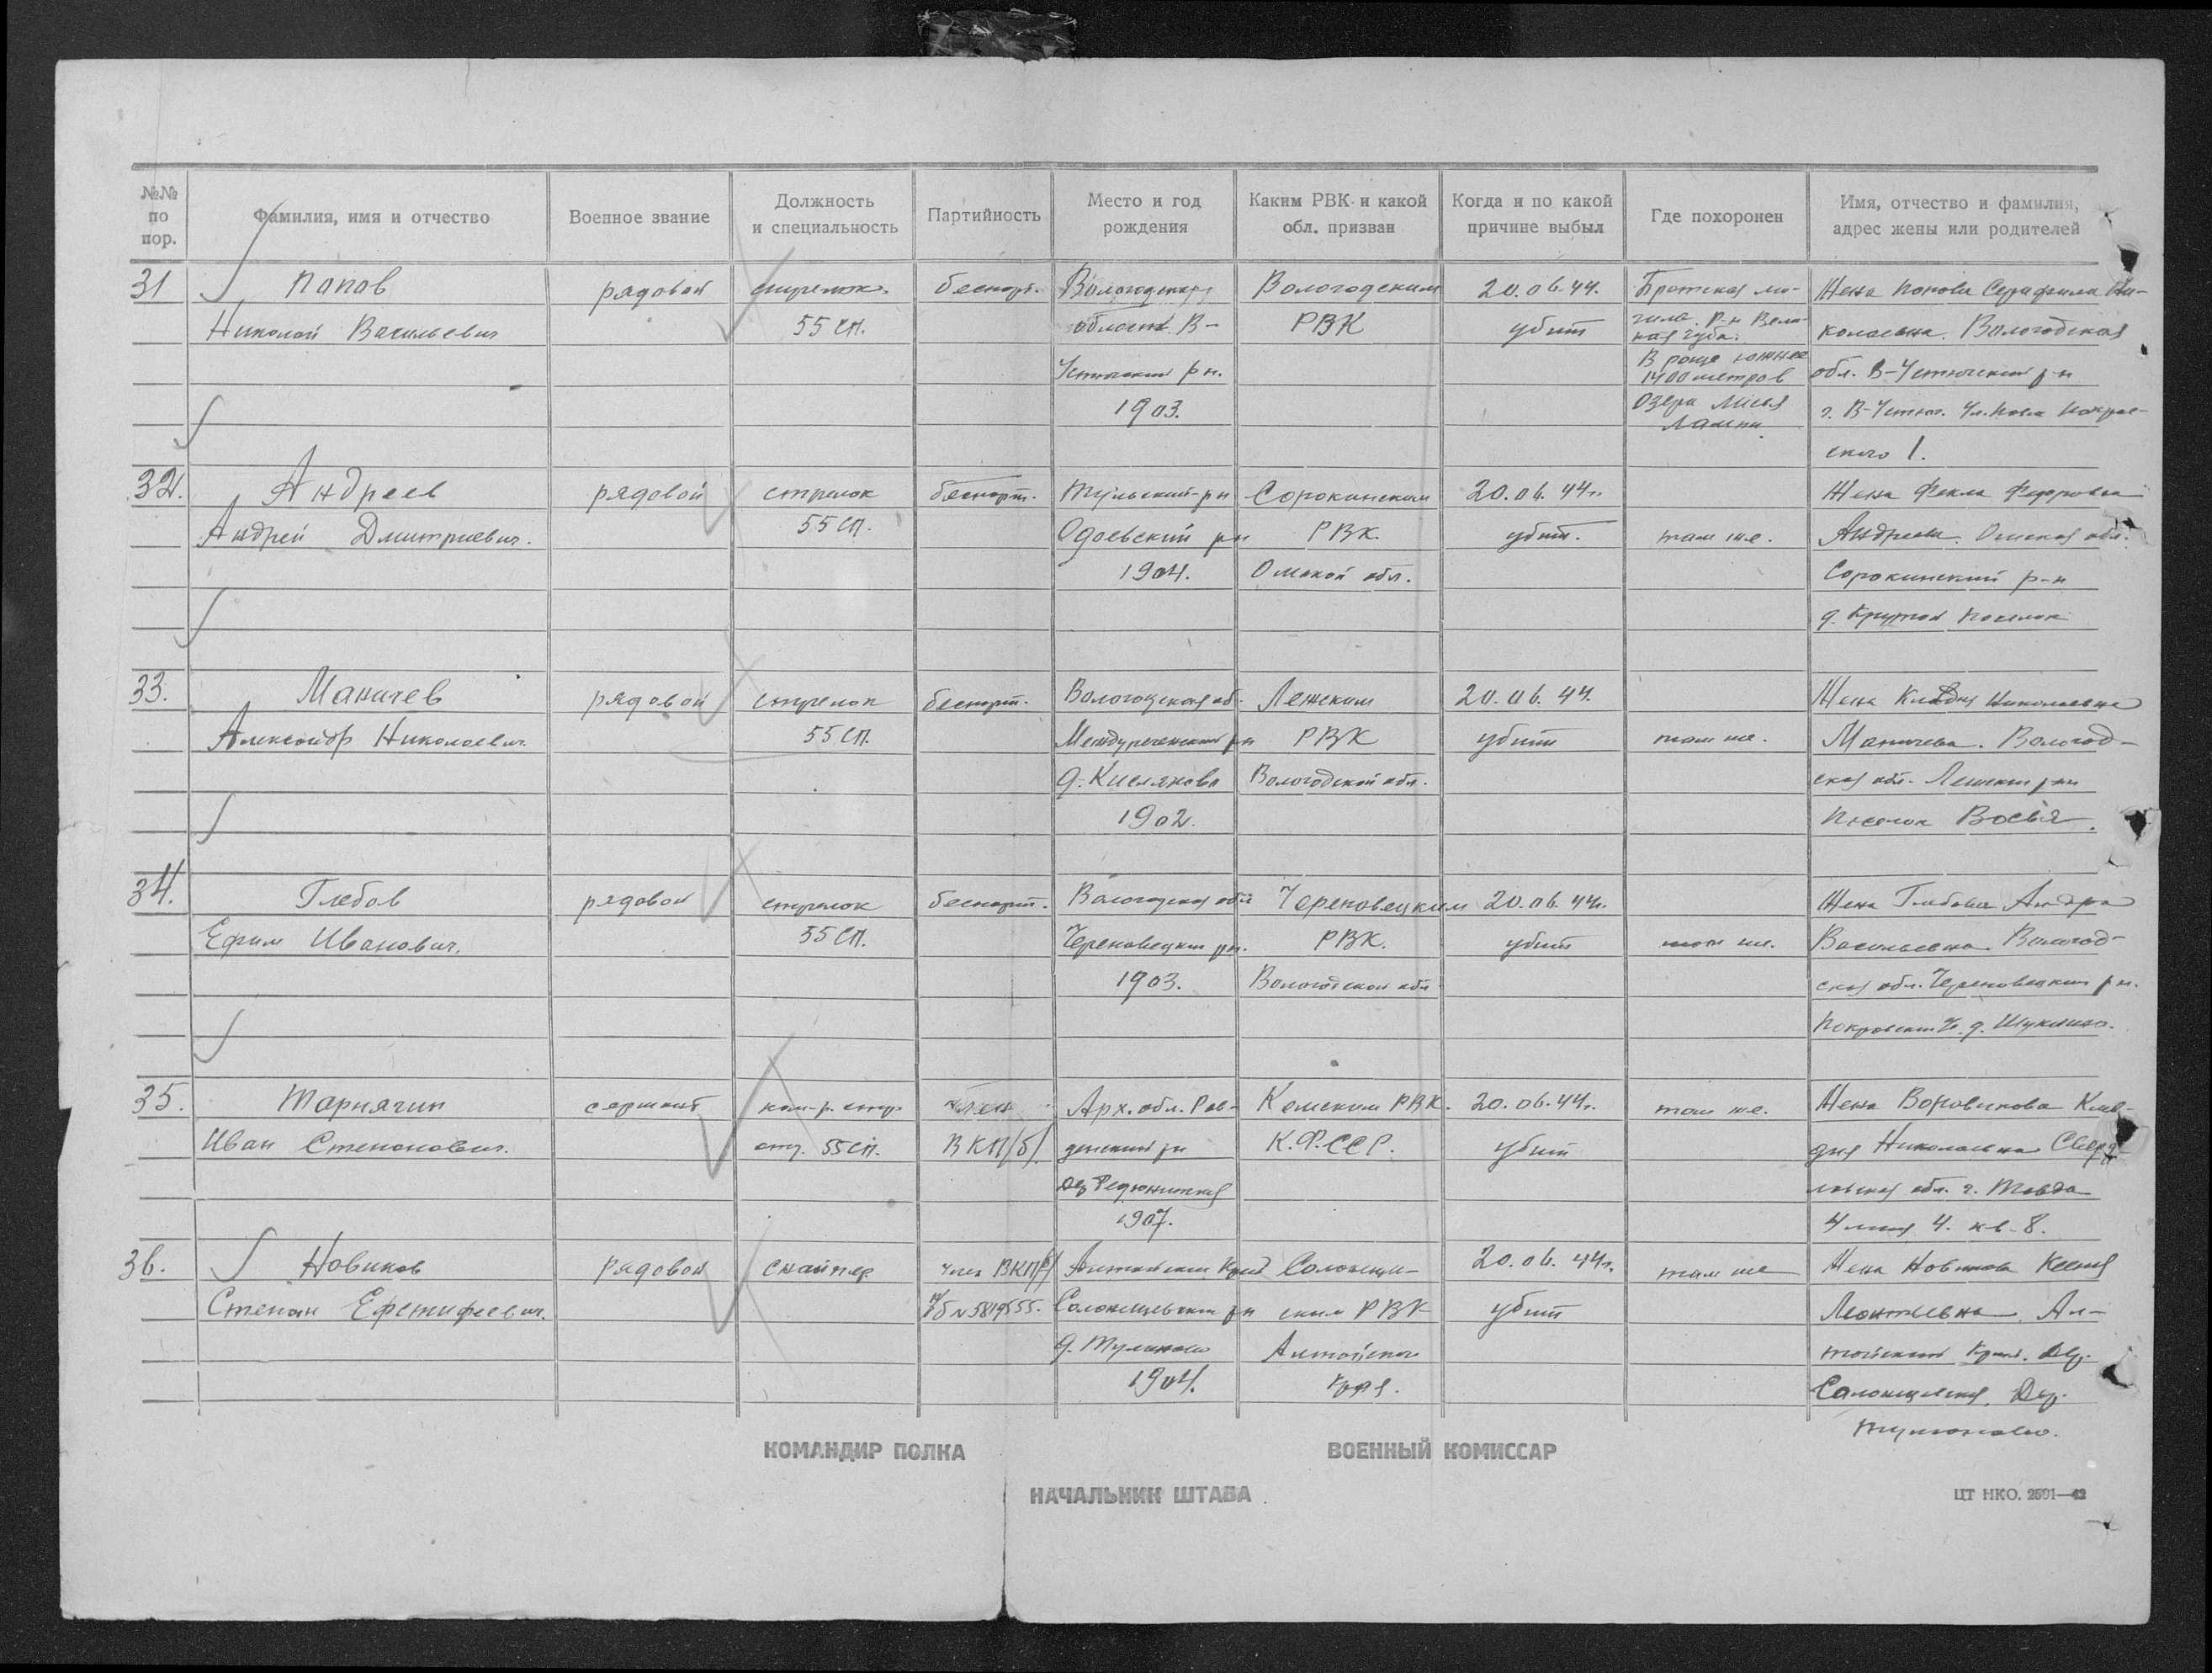 №№ по пор.
Фамилия, имя и отчество
Военное звание
Должность и специальность
Партийность
Место и год рождения
Каким РВК и какой обл. призван
Когда и по какой причине выбыл
Где похоронен
Имя, отчество и фамилия, адрес жены или родителей
31
Попов
Николай Васильевич
рядовой
стрелок
55 сп.
беспарт.
Вологодская
область В-
Устюгский р-н.
1903.
Вологодским
РВК
20.06.44.
убит
Братская мо-
гила. Р-н Вели-
кая Губа.
В роще южнее
1400 метров
Озера
Лампи
Жена Попова Серафима Ни-
колаевна. Вологодская
обл. В-Устюгский р-н
г. В-Устюг. Ул.
ского 1.
32.
Андреев
Андрей Дмитриевич.
рядовой
стрелок
55 сп.
беспарт.
Тульский р-н
Одоевский р-н
1904.
Сорокинским
РВК.
Омской обл.
20.06.44 г.
убит.
там же.
Жена Фекла Федоровна
Андреева. Омская обл.
Сорокинский р-н
д. Крутой поселок
33.
Маничев
Александр Николаевич
рядовой
стрелок
55 сп.
беспарт.
Вологодская об.
Междуреченский р-н
д. Кисляково
1902.
Лежским
РВК
Вологодской обл.
20.06.44.
убит
там же.
Жена Клавдия Николаевна
Маничева. Вологод-
ская обл. Лежский р-н
поселок Восья.
34.
Глебов
Ефим Иванович.
рядовой
стрелок
55 сп.
беспарт.
Вологодская обл
Череповецкий р-н.
1903.
Череповецким
РВК.
Вологодской обл
20.06.44г.
убит
там же.
Жена Глебова
Васильевна Вологод-
ская обл. Череповецкий р-н.
Покровский д. Шуклино.
35.
Тарнягин
Иван Степанович.
сержант
ком-р. стр.
отд. 55 сп.
член
ВКП/б/
Арх. обл. Ров-
динский р-н
дер
1907.
Кемским РВК.
К.Ф.ССР.
20.06.44г.
убит
там же.
Жена Воровикова Клав-
дия Николаевна Сверд-
ловская обл. г. Тавда
4 линия 4. кв. 8.
36.
Новиков
Степан
рядовой
снайпер
член ВКП/б/
п/б №5819555.
Алтайский край
Солонешенский р-н
д.
1904.
Солонеше-
ским РВК
Алтайского
края.
20.06.44г.
убит
там же
Жена Новикова Ксения
Леонтьевна. Ал-
тайский край.
дер.
КОМАНДИР ПОЛКА
ВОЕННЫЙ КОМИССАР
НАЧАЛЬНИК ШТАБА
ЦТ НКО. 2591—42